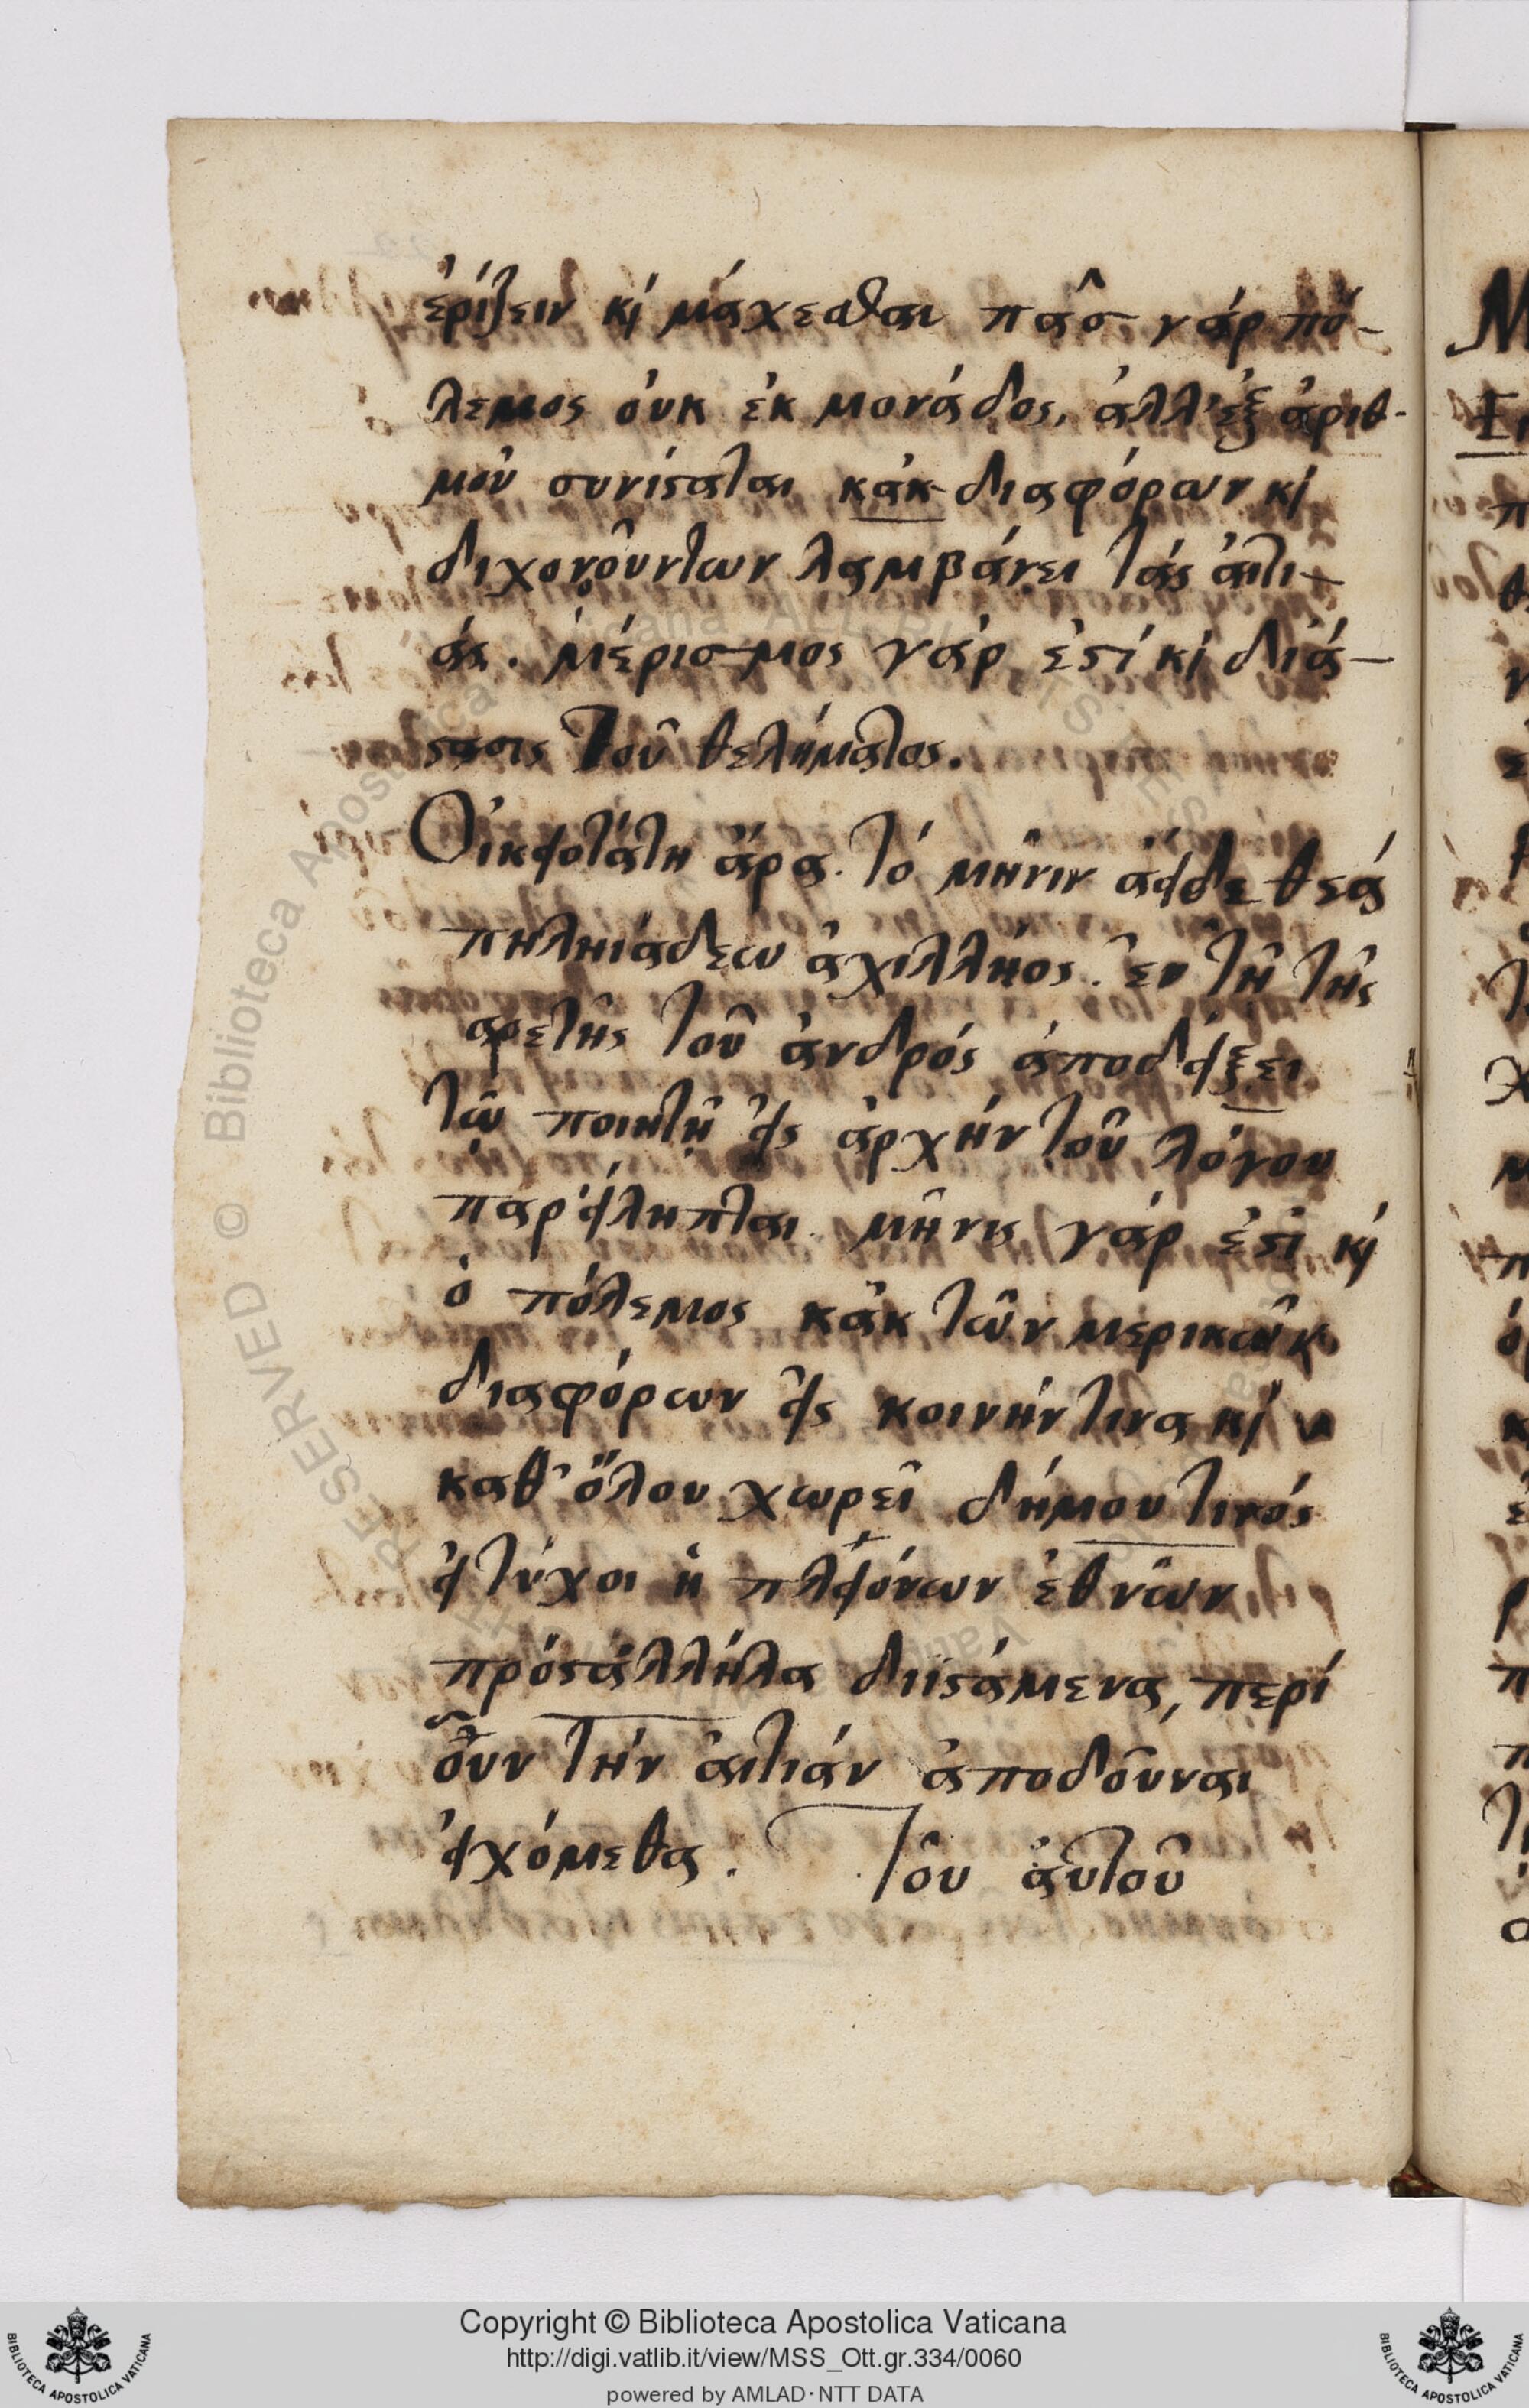 ἐρίζειν κὶ μάχεσθαι πᾶσ γάρ πό-
λεμος ὀυκ ἐκ μονάδος, ἀλλ' ἐξ ἀριθ-
μοῦ συνίσταται κἀκ διαφόρων κὶ
διχονοῦντων λαμβάνει τάς ἀιτι-
άς. μέρισμος γάρ ἐστί κὶ διά-
στασις τοῦ θελήματος.
Ὀικειοτάτη ἄρα. τό μῆνιν ἄειδε θεά
πηληιάδεω ἀχιλλῆος. ἐν τῆ τῆς
ἀρετῆς τοῦ ἀνδρός ἀποδείξει
τῶ ποιητῆ εἰς ἀρχήν τοῦ λόγου
παρείληπται. μῆνις γάρ ἐστί κὶ
ὁ πόλεμος κἀκ τῶν μερικῶν κ
διαφόρων εἰς κοινήν τινα κὶ
καθ' ὅλου χωρεῖ δήμου τινός
εἰ τύχοι ἤ πλειόνων ἐθνῶν
πρόσἀλλήλα διϊστάμενα, περί
οὗν τήν ἀιτιάν ἀποδοῦναι
εἰχόμεθα. Τοῦ ἀυτοῦ
Copyright © Biblioteca Apostolica Vaticana
http://digi.vatlib.it/view/MSS_Ott.gr.334/0060
powered by AMLAD·NTT DATA
BIBLIOTECA APOSTOLICA VATICANA
BIBLIOTECA APOSTOLICA VATICANA